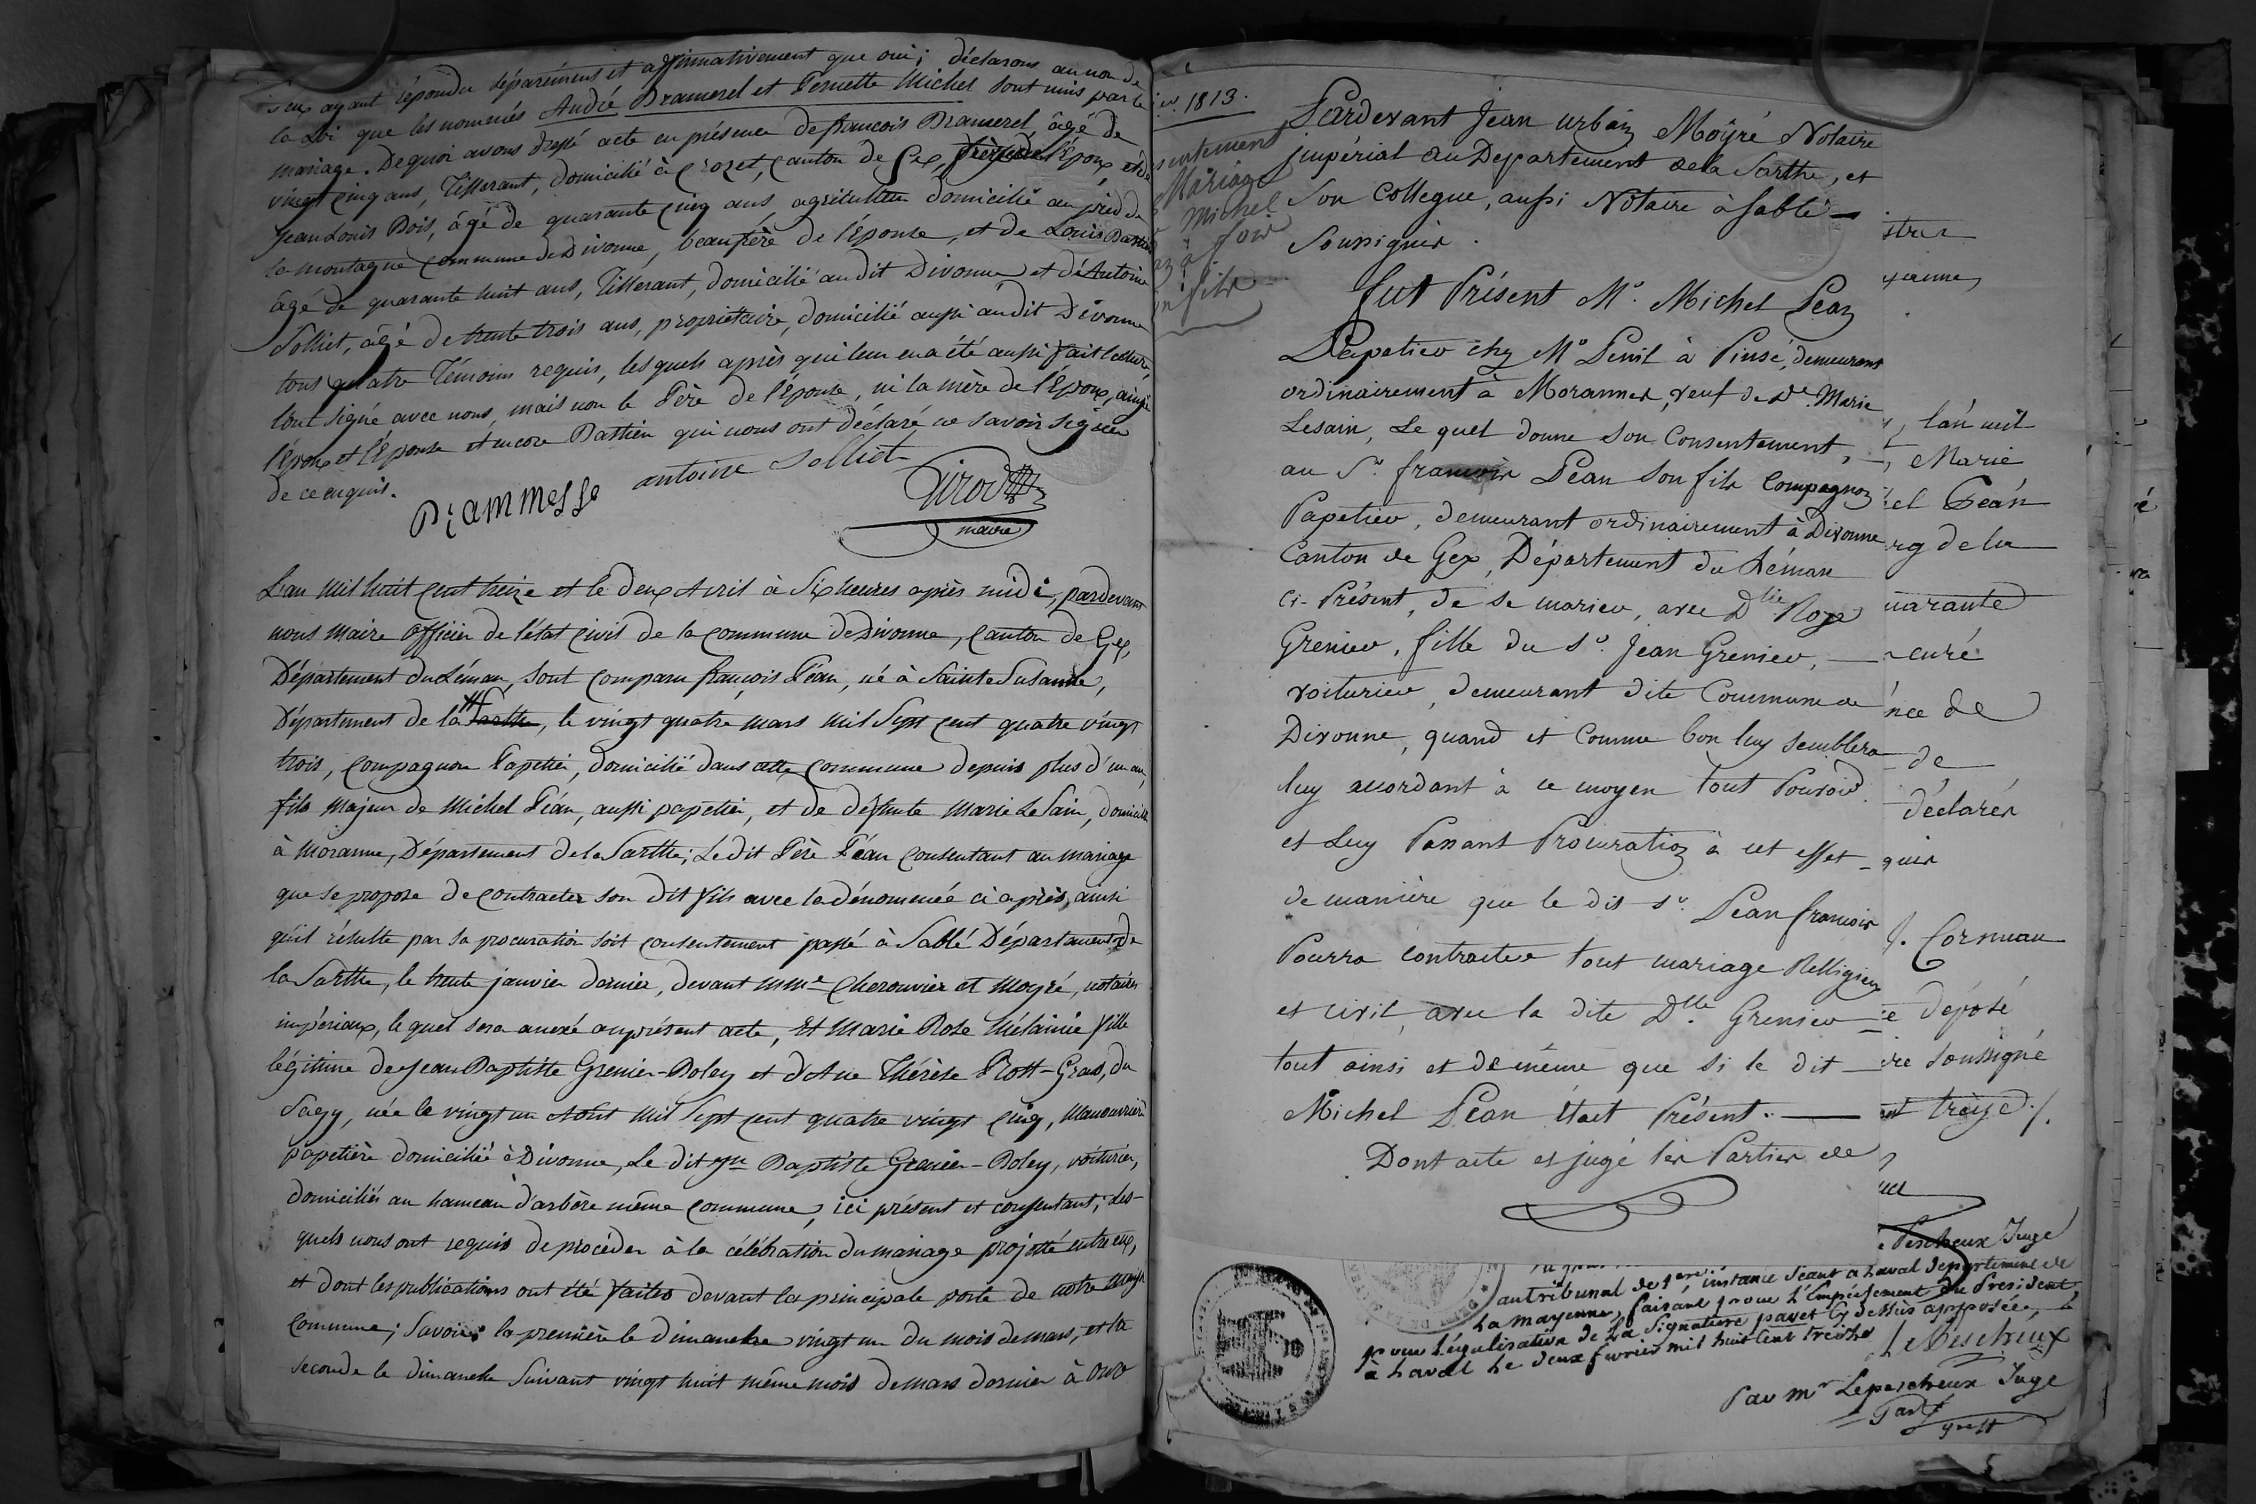 eux ayant répondu séparément et affirmativement que oui; déclarons au nom de
la Loi que les nommés André Dramerel et Pernette Michel sont unis par le
mariage. De quoi avons dressé acte en présence de francois Dramerel âgé de
vingt cinq ans, Tisserant, domicilié à Crozet, canton de Gex, frère de l'époux, et de
Jean Louis Bois, âgé de quarante cinq ans agriculteur domicilié au pied de
la montagne commune de Divonne, beaufrère de l'épouse, et de Louis Bastien
âgé de quarante huit ans, Tisserant, domicilié audit Divonne et d'Antoine
Solliet, âgé de trente trois ans, propriétaire, domicilié aussi audit Divonne
tous quatre Témoins requis, lesquels après qu'il leur en a été aussi fait lecture
l'ont signé avec nous, mais non le Père de l'épouse, ni la mère de l'Epoux, ainsi
l'époux et l'épouse et encore Bastien qui nous ont déclaré ne savoir signer
de ce enquis.
antoine Solliet
Girod
maire
L'an mil huit cent treize et le deux Avril à Six heures après midi, pardevant
nous Maire officier de l'état civil de la commune de Divonne, canton de Gex,
Département du Léman, sont comparu françois Péan, né à Sainte Susanne,
Département de la Sarthe, le vingt quatre mars mil sept cent quatre vingt
trois, compagnon Papetier, domicilié dans cette commune depuis plus d'un an,
fils majeur de Michel Péan, aussi papetier, et de défunte Marie Le Sain, domicilié
à Moranne, Département de la Sarthe; Le dit Père Péan consentant au mariage
que se propose de contracter son dit fils avec la dénommée ci après, ainsi
qu'il résulte par sa procuration soit consentement passé à Sablé Département de
la Sarthe, le trente janvier dernier, devant Mme Cherouvrier et Moyré, notaires
impériaux, lequel sera anexé au présent acte, Et Marie Rose Mélainie fille
légitime de Jean Baptiste Grenier-Boley et d'Ane Thérèse Prost-Gras, du
Sagy, née le vingt un Août mil sept cent quatre vingt cinq, Manouvrière
papetière domiciliée à Divonne, Le dit Jn Baptiste Grenier-Boley, voiturier,
domiciliés au hameau d'arbère même commune, ici présent et consentant; Les-
quels nous ont requis de procéder à la célébration du mariage projetté entre eux,
et dont les publications ont été faites devant la principale porte de notre Maison
Commune; Savoir; la première le dimanche vingt un du mois de mars, et la
seconde le dimanche suivant vingt huit même mois de mars dernier à onze
1813.
sentement
Mariage
Michel
à son
fils
Pardevant Jean urbain Moÿré Notaire
impérial au Departement de la Sarthe, et
Son Collegue, aussi Notaire à Sablé
Soussignés.
fut Présent Mr. Michel Pean
Papetier chez Mr Penil à Pinsé, demeurant
ordinairement à Morannes, veuf de De Marie
Lesain, Le quel donne Son Consentement,
au Sr. francois Péan Son fils Compagnon
Papetier, demeurant ordinairement à Divonne
Canton de Gex, Département du Léman
ci-Présent, de se marier, avec Dlle Roze
Grenier, fille du Sr. Jean Grenier,
voiturier, demeurant dite Commune de
Divonne, quand et Comme bon luy semblera
luy accordant à ce moyen tout Pouvoir
et Luy Passant Procuration à cet effet
de manière que le dit Sr. Pean francois
Pourra contracter tout mariage Relligieux
et civil, avec la dite Dlle Grenier
tout ainsi et de même que si le dit
Michel Péan était Présent.
Dont acte et jugé les Parties de
l'an mil
Marie
Péan
de la
quarante
curé
de
de
déclarés
J. Cornuau
déposé
soussigné
treize /.
Pescheux Juge
au tribunal de 1ere instance Séant à Laval departement de
La mayenne, faisant pour l'Empeschement du President
pour Légalisation de La Signature pavet Cy dessus apposée,
à Laval Le deux fevrier mil huit Cent treize
LePescheux
Par Mr Lepescheux Juge